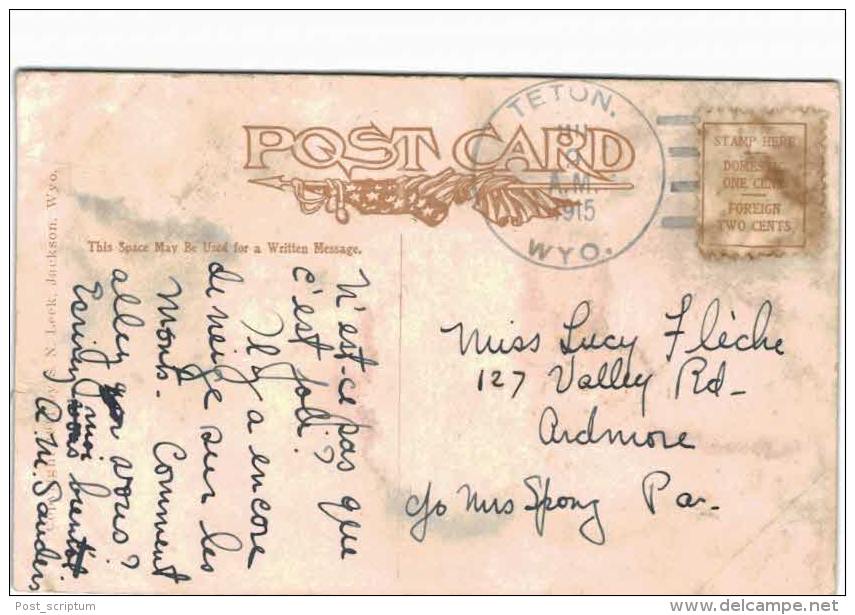 POST CARD
TETON,
A.M.
1915
WYO.
STAMP HERE
DOMESTIC
ONE CENT
FOREIGN
TWO CENTS
This Space May Be Used for a Written Message.
N. Leek, Jackson, Wyo.
N'est-ce pas que
c'est joli?
Il y a encore
de neige sur les
Monts. Comment
allez vous?
Ecrivez moi bientot
Q. M. Sanders
Miss Lucy Flèche
127 Valley Rd-
Ardmore
c/o Mrs Spong Pa-
Post_scriptum
delcampe.net